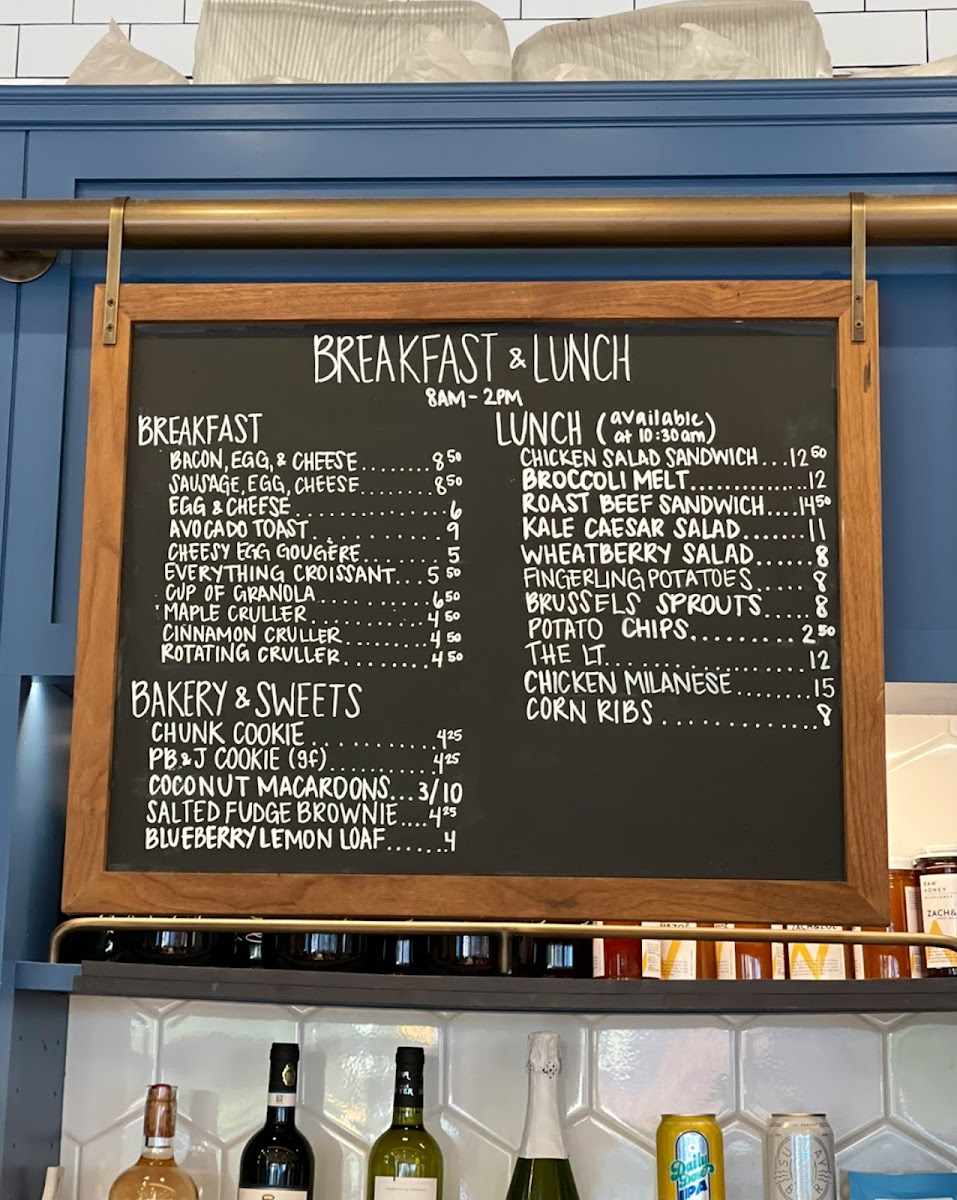 BREAKFAST & LUNCH
8AM - 2PM
BREAKFAST
BACON, EGG, & CHEESE........8 50
SAUSAGE, EGG, CHEESE........8 50
EGG & CHEESE................6
AVOCADO TOAST...............9
CHEESY EGG GOUGÈRE..........5
EVERYTHING CROISSANT...5 50
CUP OF GRANOLA............6 50
MAPLE CRULLER.............4 50
CINNAMON CRULLER..........4 50
ROTATING CRULLER..........4 50
BAKERY & SWEETS
CHUNK COOKIE............4 25
PB & J COOKIE (gf)..........4 25
COCONUT MACAROONS...3/10
SALTED FUDGE BROWNIE....4 25
BLUEBERRY LEMON LOAF......4
LUNCH (available at 10:30am)
CHICKEN SALAD SANDWICH...12 50
BROCCOLI MELT..............12
ROAST BEEF SANDWICH....14 50
KALE CAESAR SALAD.......11
WHEATBERRY SALAD......8
FINGERLING POTATOES.....8
BRUSSELS SPROUTS.....8
POTATO CHIPS.........2 50
THE LT.................12
CHICKEN MILANESE.......15
CORN RIBS............8
RAW
HONEY
ZACH&
ZACH&ZOË
Daily
IPA